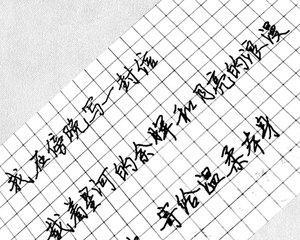 我在傍晚写一封信
载着星河的余晖和月亮的浪漫
寄给温柔本身